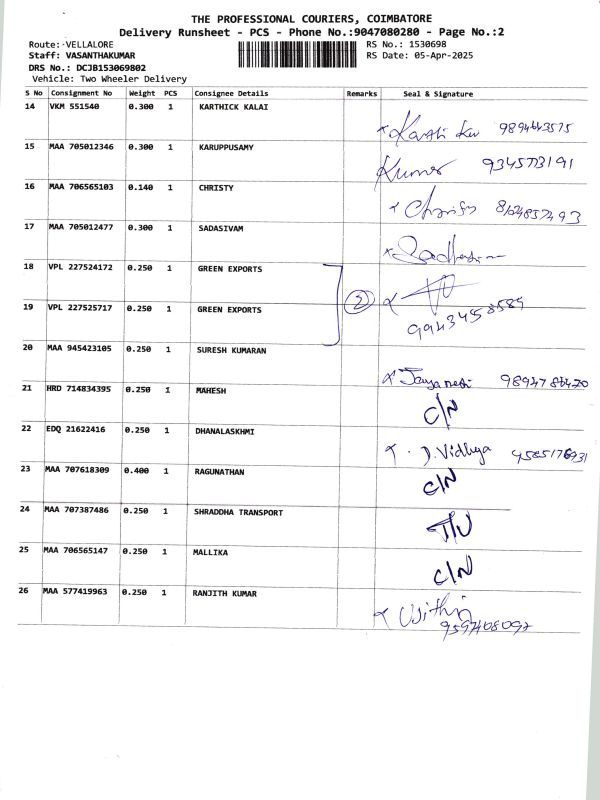 THE PROFESSIONAL COURIERS, COIMBATORE
Delivery Runsheet - PCS - Phone No.:9047080280 - Page No.:2
Route: VELLALORE RS No.: 1530698
Staff: VASANTHAKUMAR RS Date: 05-Apr-2025
DRS No.: DCJB153069802
Vehicle: Two Wheeler Delivery
S No Consignment No Weight PCS Consignee Details Remarks Seal & Signature
14 VKM 551540 0.300 1 KARTHICK KALAI
15 MAA 705012346 0.300 1 KARUPPUSAMY
Kumar
16 MAA 706565103 0.140 1 CHRISTY
17 MAA 705012477 0.300 1 SADASIVAM
18 VPL 227524172 0.250 1 GREEN EXPORTS
2
19 VPL 227525717 0.250 1 GREEN EXPORTS
20 MAA 945423105 0.250 1 SURESH KUMARAN
21 HRD 714834395 0.250 1 MAHESH
C/N
22 EDQ 21622416 0.250 1 DHANALASKHMI
D. Vidhya
23 MAA 707618309 0.400 1 RAGUNATHAN
C/N
24 MAA 707387486 0.250 1 SHRADDHA TRANSPORT
25 MAA 706565147 0.250 1 MALLIKA
C/N
26 MAA 577419963 0.250 1 RANJITH KUMAR